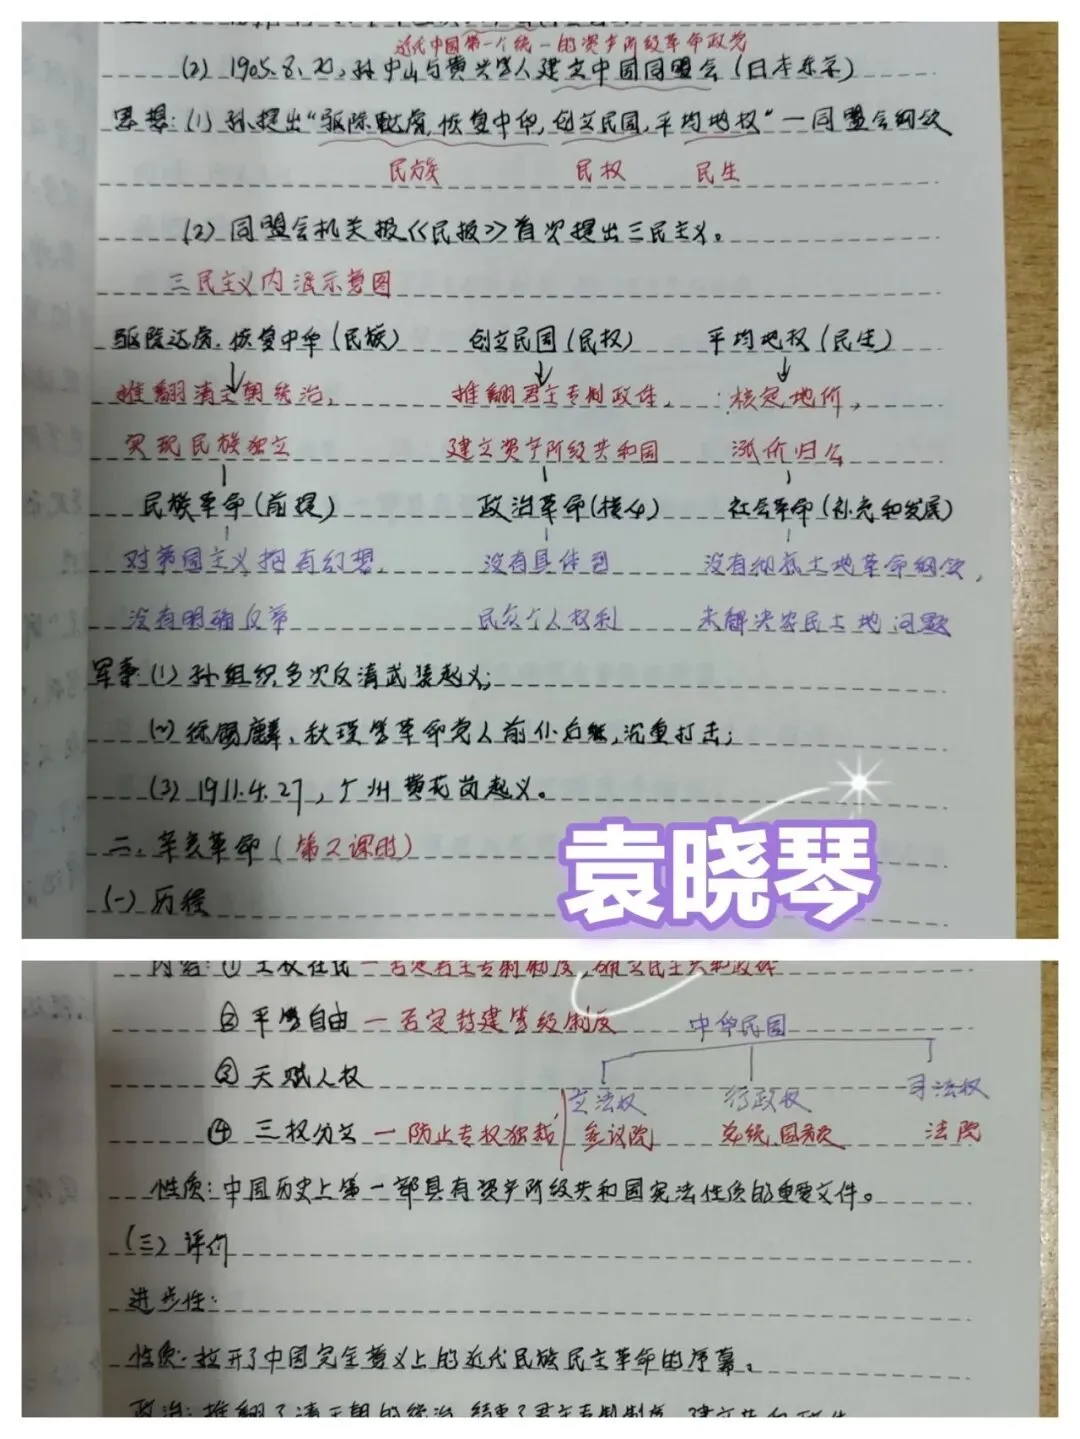 近代中国第一个统一的资产阶级革命政党
(2) 1905.8.20,孙中山与黄兴等人建立中国同盟会(日本东京)
思想:(1) 孙提出“驱除鞑虏,恢复中华,创立民国,平均地权”—同盟会纲领
民族 民权 民生
(2) 同盟会机关报《民报》首次提出三民主义。
三民主义内涵示意图
驱除达虏,恢复中华(民族) 创立民国(民权) 平均地权(民生)
推翻清王朝统治, 推翻君主专制政体, 核定地价,
实现民族独立 建立资产阶级共和国 涨价归公
民族革命(前提) 政治革命(核心) 社会革命(补充和发展)
对帝国主义抱有幻想, 没有具体到 没有彻底土地革命纲领,
没有明确反帝 民众个人权利 未解决农民土地问题
军事:(1) 孙组织多次反清武装起义;
(2) 徐锡麟、秋瑾等革命党人前仆后继,沉重打击;
(3) 1911.4.27,广州黄花岗起义。
二、辛亥革命(第2课时)
(一) 历程
袁晓琴
内容:① 主权在民—否定君主专制制度,确立民主共和政体
② 平等自由—否定封建等级制度 中华民国
③ 天赋人权
立法权 行政权 司法权
④ 三权分立—防止专权独裁, 参议院 总统,国务员 法院
性质:中国历史上第一部具有资产阶级共和国宪法性质的重要文件。
(三) 评价
进步性:
性质:拉开了中国完全意义上的近代民族民主革命的序幕。
政治:推翻了清王朝的统治,结束了君主专制制度,建立共和政体